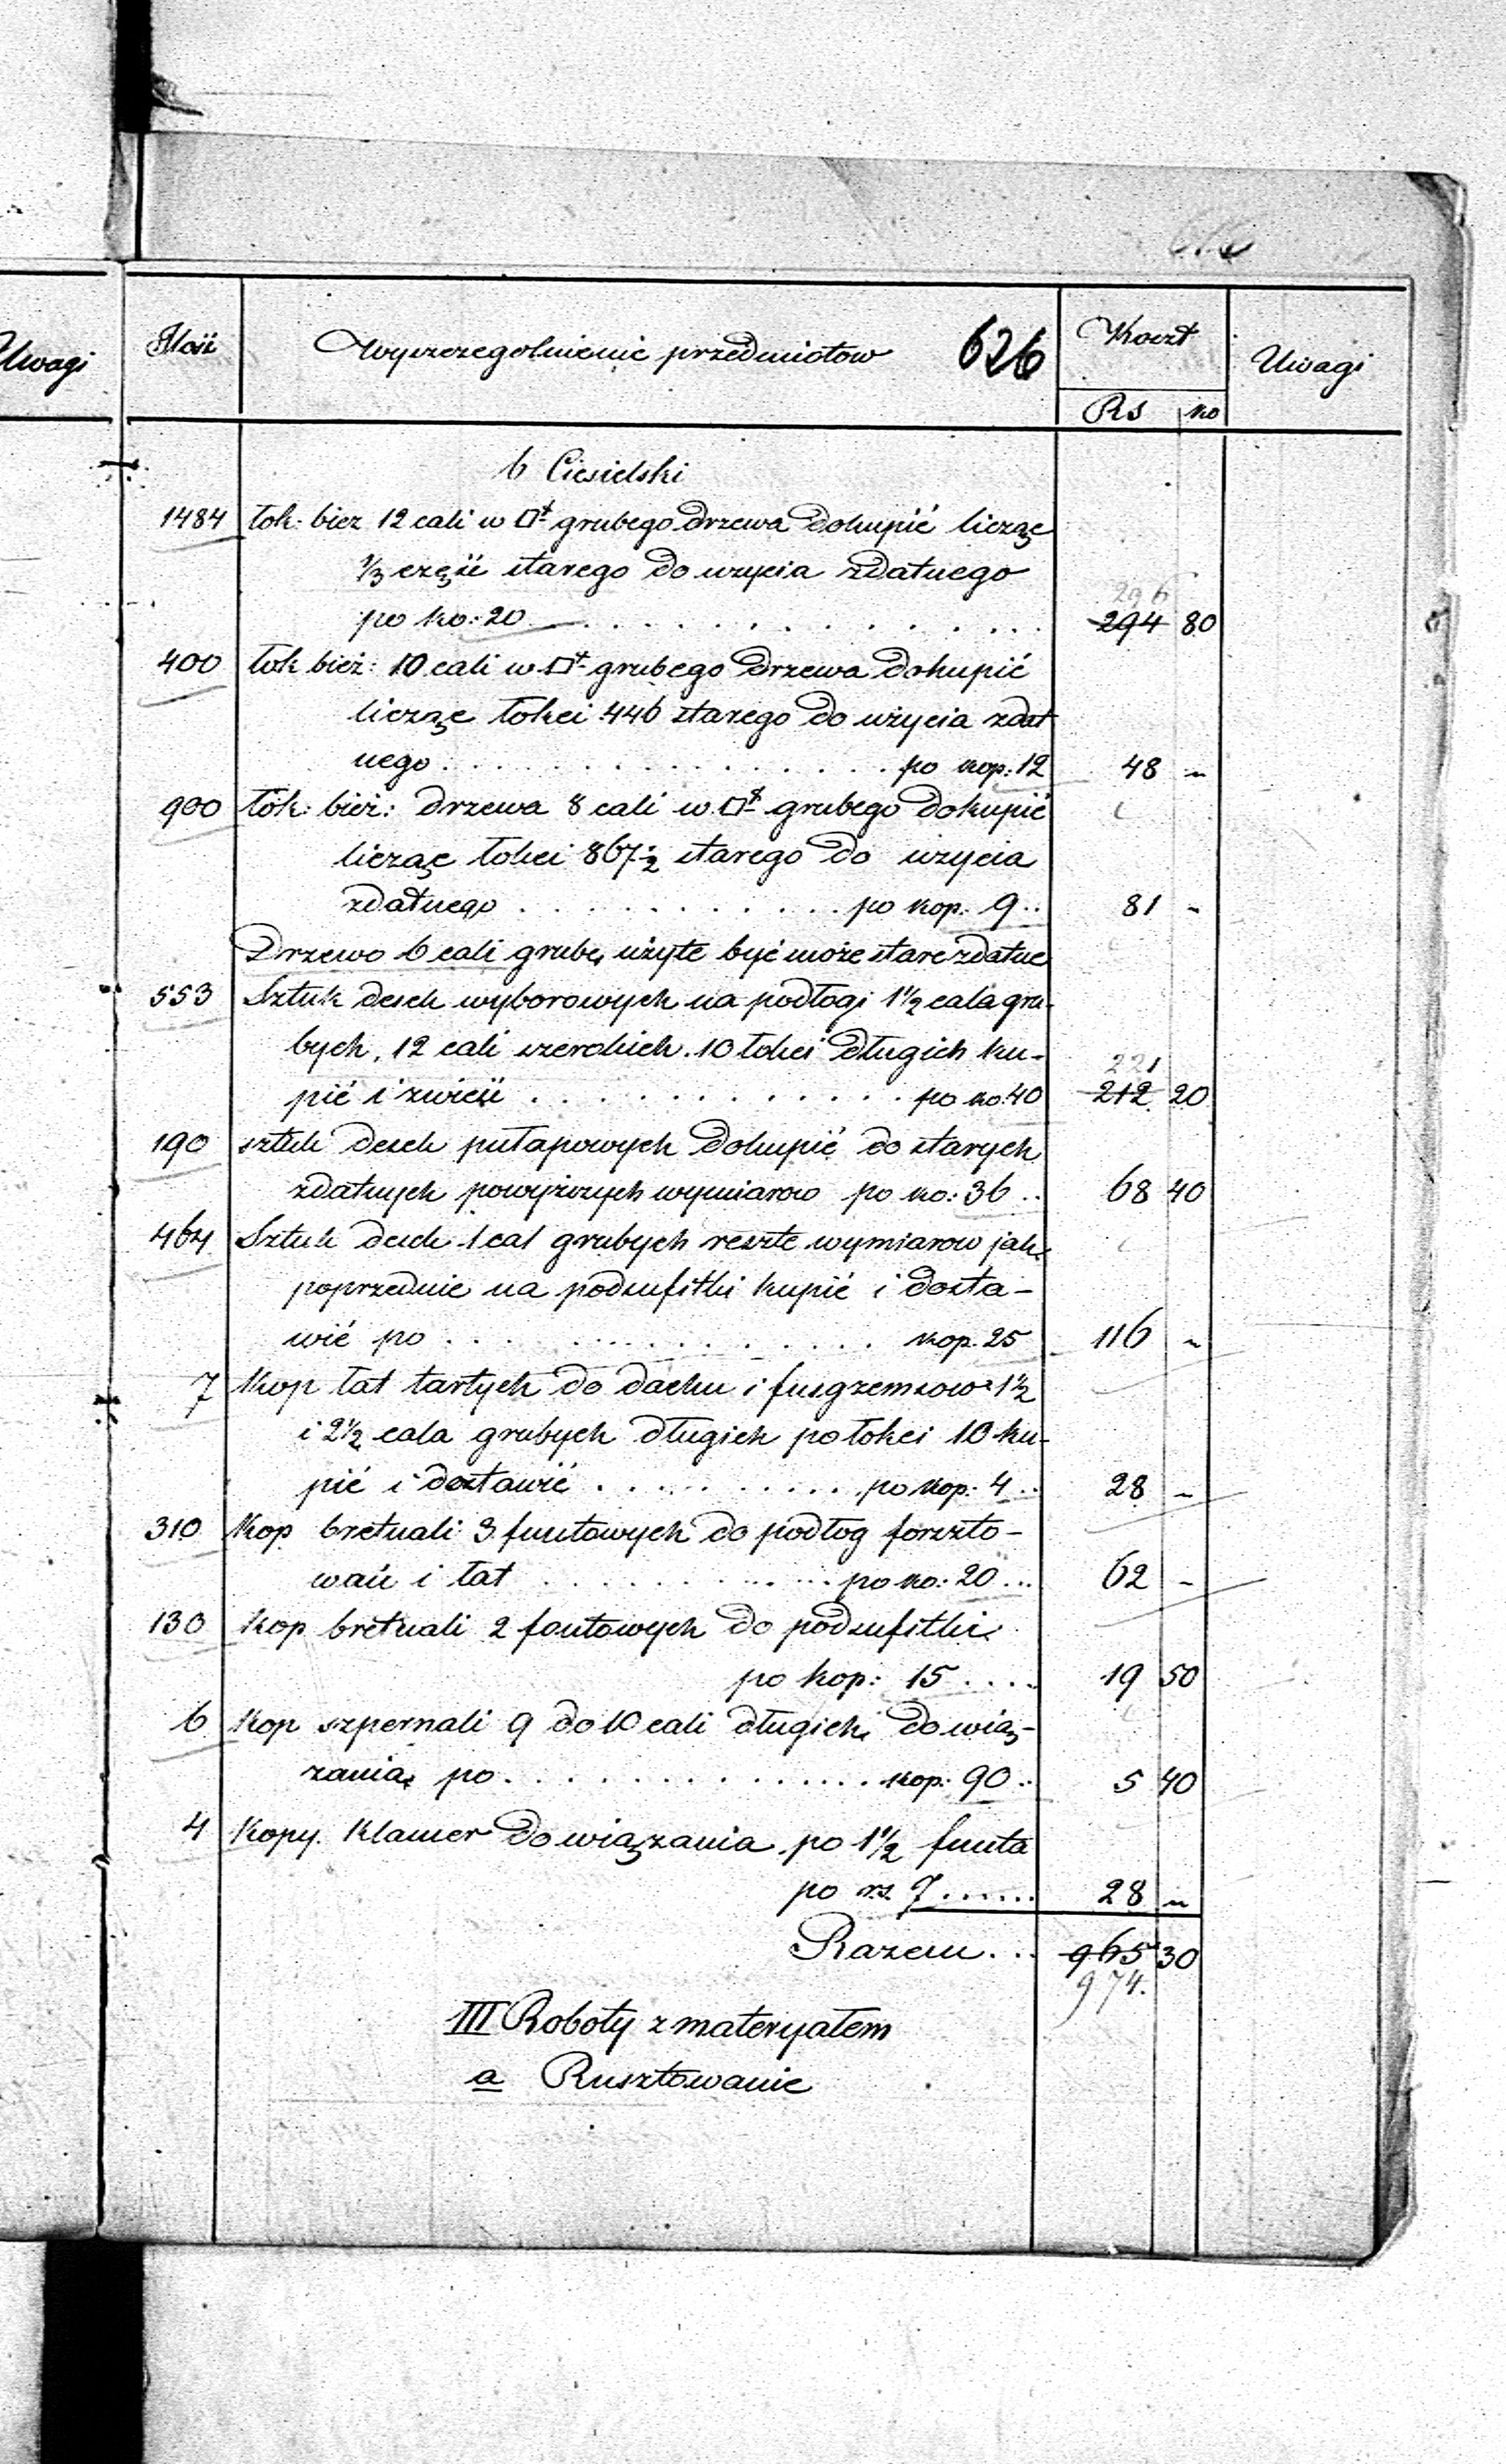 Uwagi
Ilość Wyszczególnienie przedmiotow 626 Koszt Uwagi
Rs ko
b Ciesielski
1484 łok: bież 12 cali w □t grubego drzewa dokupić licząc
⅓ część starego do użycia zdatnego
296
po ko: 20 . . . . . . . . . . . . . 294 80
400 łok bież: 10 cali w □t grubego drzewa dokupić
licząc łokci 446 starego do użycia zdat
nego . . . . . . . . . . . . . po kop: 12 48 „
900 łok: bież: drzewa 8 cali w □t grubego dokupić
licząc łokci 867½ starego do użycia
zdatnego . . . . . . . . . . . . po kop: 9 .. 81 „
Drzewo 6 cali grube, użyte być może stare zdatne
553 Sztuk desek wyborowych na podłogi 1½ cala gru-
bych, 12 cali szerokich. 10 łokci długich ku-
221
pić i zwieść . . . . . . . . . . . . . po ko: 40 212 20
190 sztuk desek pułapowych dokupić do starych
zdatnych powyższych wymiarow po ko: 36 .. 68 40
464 Sztuk desek 1 cal grubych reszte wymiarow jak
poprzednie na podsufitki kupić i dosta-
wić po . . . . . . . . . . . . . kop. 25 116 „
7 Kop łat tartych do dachu i fusgzemsow 1½
i 2½ cala grubych długich po łokci 10 ku-
pić i dostawić . . . . . . . . . . po kop: 4 .. 28 „
310 Kop bretnali 3 funtowych do podłog forszto-
wań i łat . . . . . . . . . . . po ko: 20 ... 62 „
130 Kop bretnali 2 fontowych do podsufitki
po kop: 15 .... 19 50
6 Kop szpernali 9 do 10 cali długich do wią-
zania po . . . . . . . . . . . . . . kop: 90 .. 5 40
4 Kopy Klamer do wiązania po 1½ funta
po rs. 7 ...... 28 „
Razem ... 965 30
974.
III Roboty z materyałem
a Rusztowanie